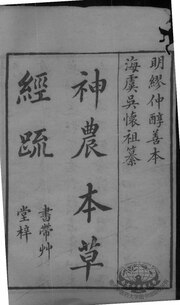 明繆仲醇善本
海虞吳懷祖纂
神農本草
經疏
書帶艸
堂梓